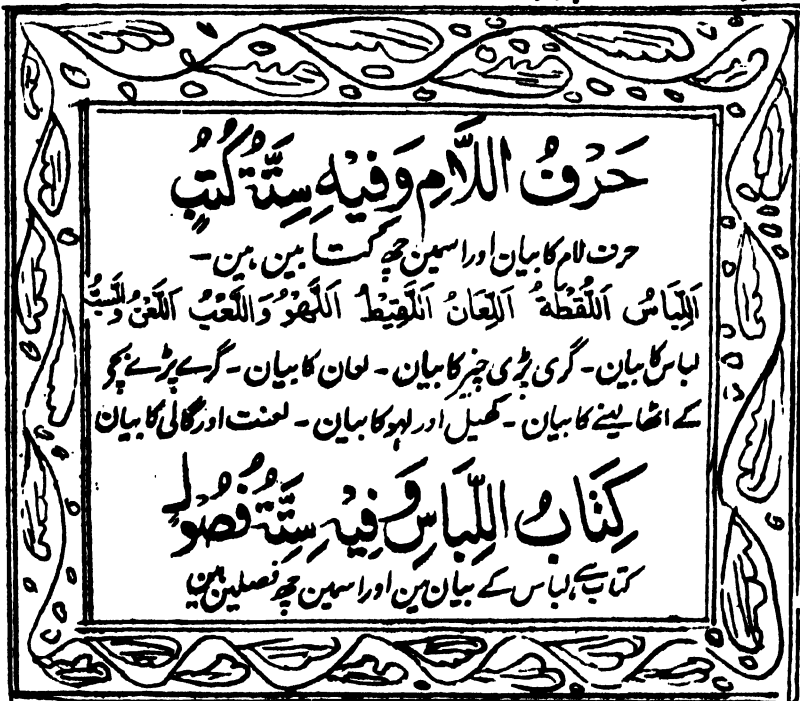 حَرْفُ اللَّامِ وَفِيْهِ سِتَّةُ كُتُبٍ
حرف لام کا بیان اور اسمین چھ کتابین ہین۔
اَللِّبَاسُ اَللُّقْطَةُ اَللِّعَانُ اَللَّقِيْطُ اَللَّهْوُ وَاللَّعْبُ اَللَّعْنُ وَالسَّبُّ
لباس کا بیان۔ گری پڑی چیز کا بیان۔ لعان کا بیان۔ گرے پڑے بچے
کے اٹھا لینے کا بیان۔ کھیل اور لہو کا بیان۔ لعنت اور گالی کا بیان
كِتَابُ اللِّبَاسِ وَفِيْهِ سِتَّةُ فُصُوْلٍ
کتاب ہے لباس کے بیان مین اور اسمین چھ فصلین ہین